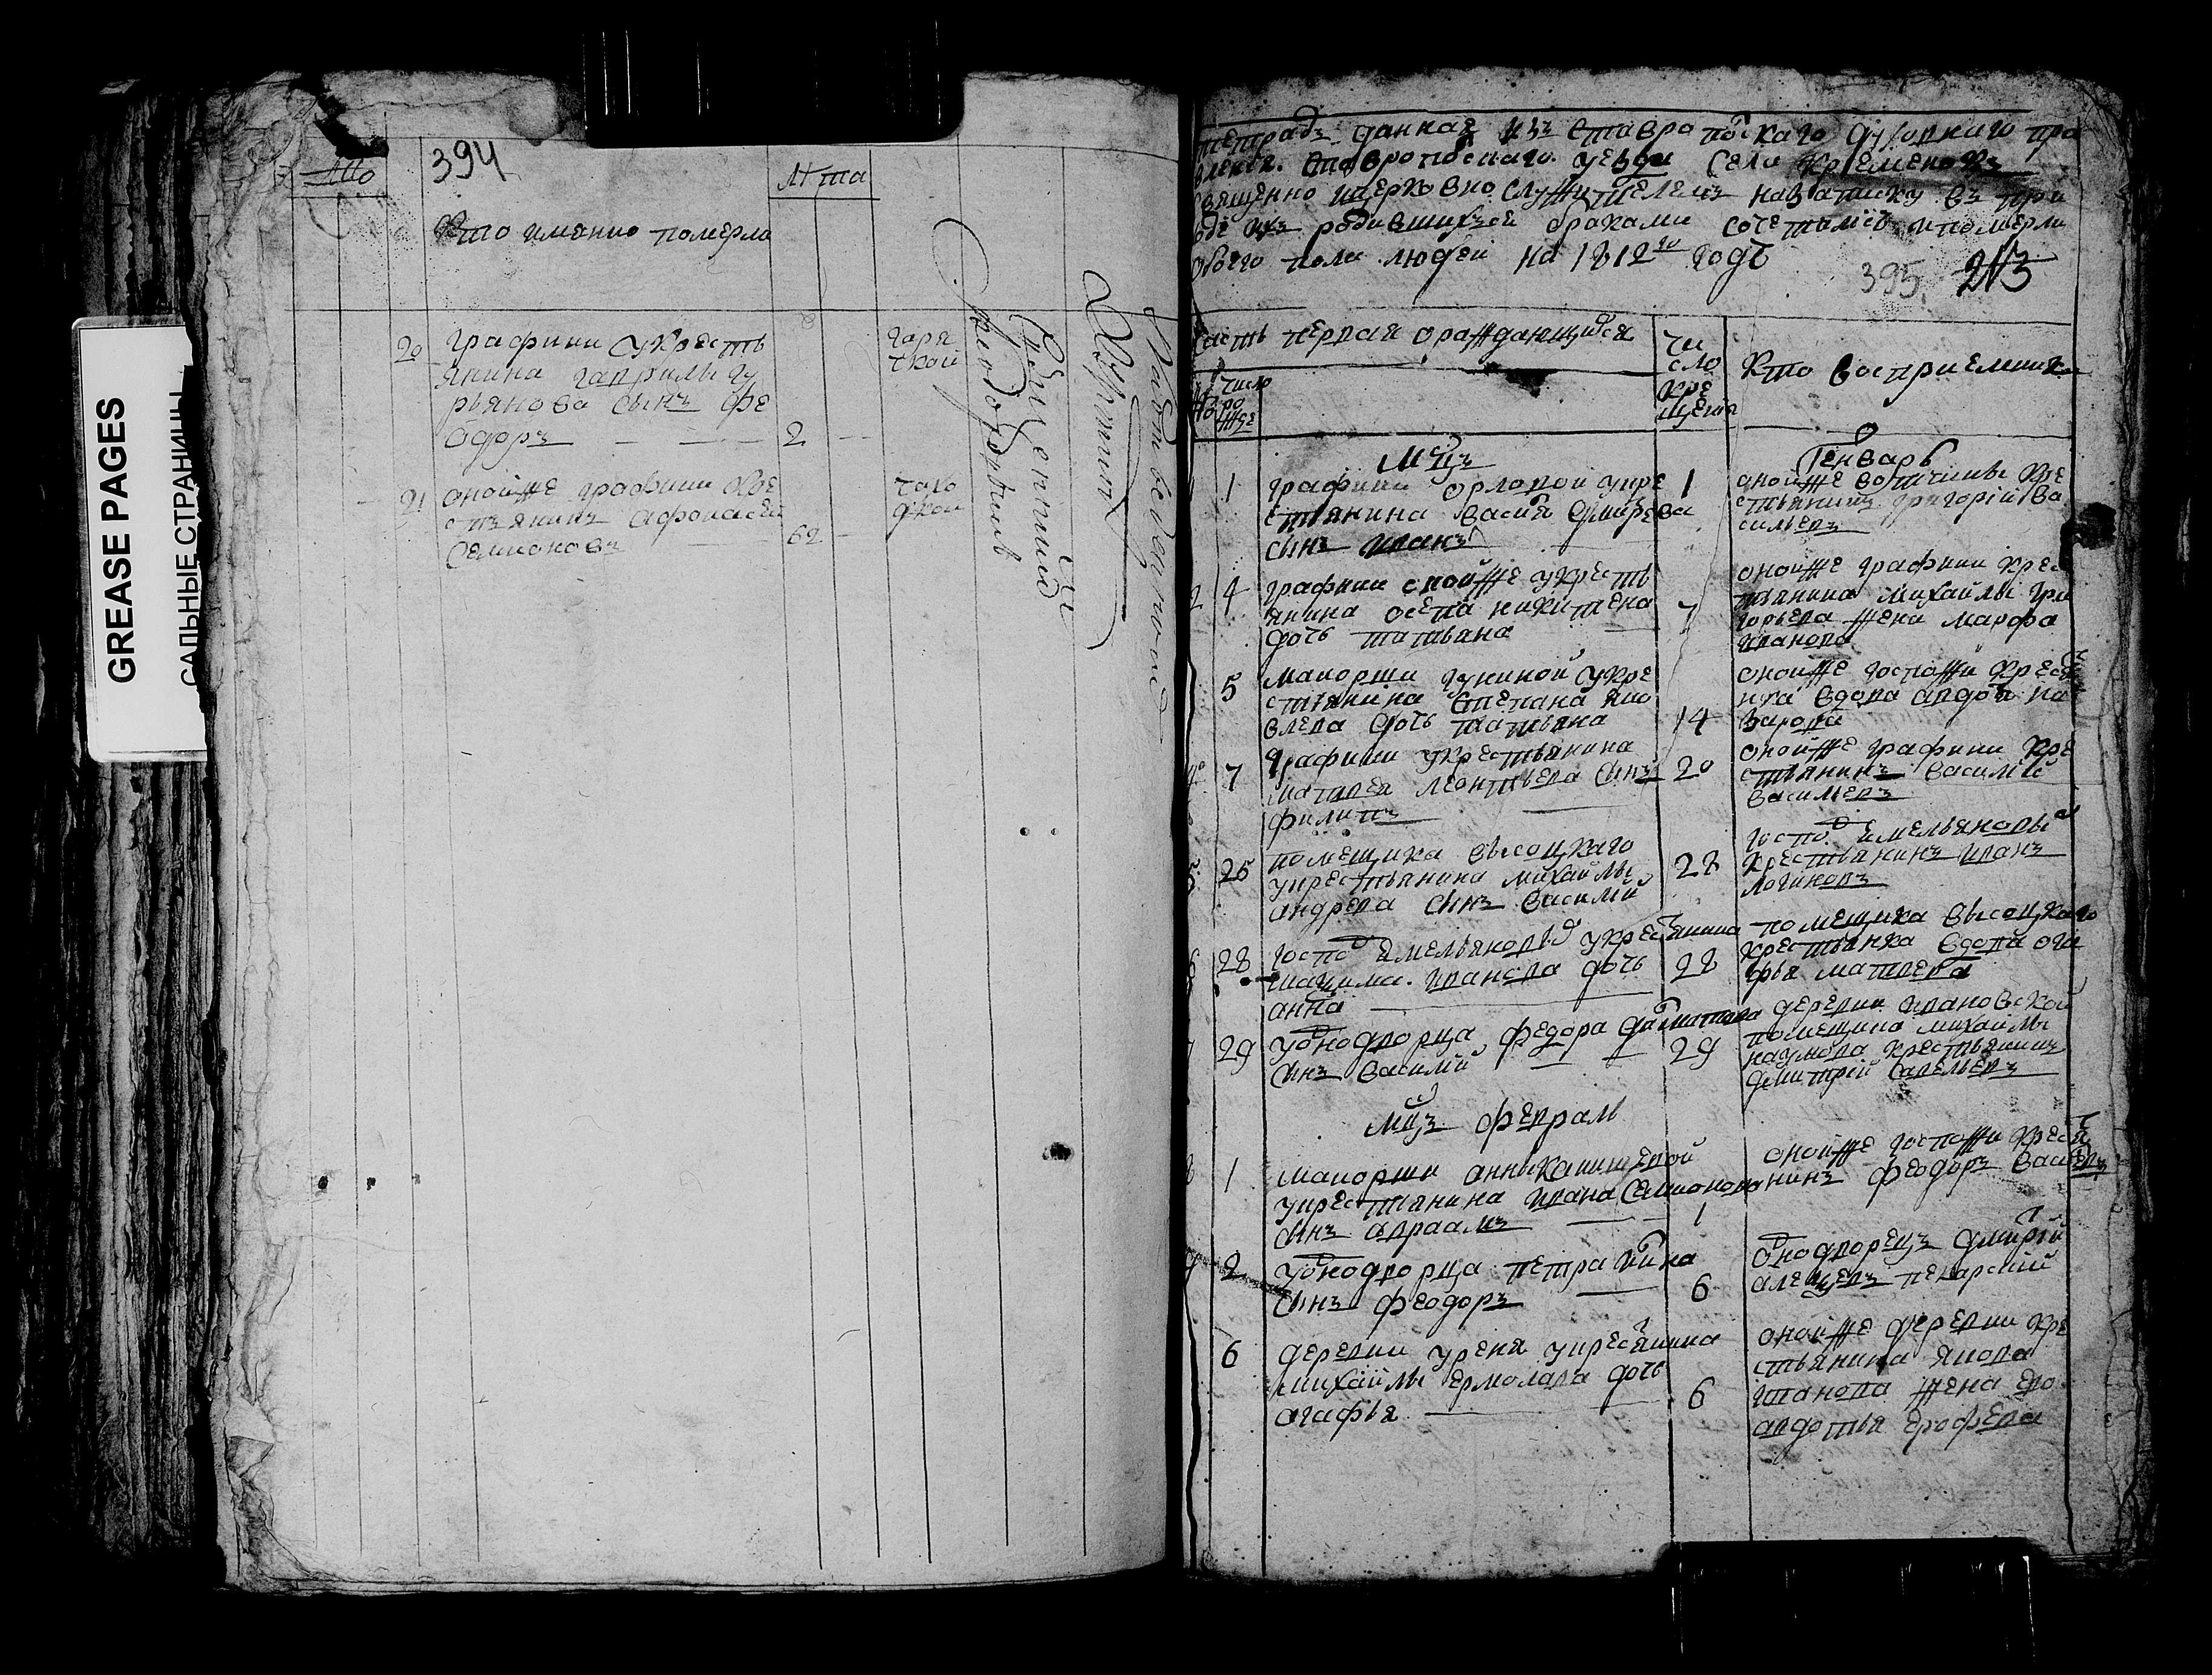 GREASE PAGES
САЛЬНЫЕ СТРАНИЦЫ
394
лѣта
Кто имянно померли
20 графини у кресть
янина гаврилы гу
рьянова сынъ фе
одоръ 2
горя
чкой
21 оной же графини кре
стьянинъ афонасей
Семионовъ 62
Священникъ
тетрадь данная изъ Ставропоскаго духовнаго пра
вления. Ставропоскаго уезда села Кременокъ
священно церковно служителемъ на записку въ при
ходе ихъ родившихся браками сочетались и померли
обоего пола людей на 1812го годъ
395 213
часть первая о раждающихся
число
ро
жде
чи
сло
кре
щения
Кто восприемники
мсцъ Генварь
1 графини орловой у кре
стьянина васил дмитрева
сынъ иванъ
1
оной же вотчины кре
стьянинъ григорий ва
сильевъ
2 4 графини оной же у кресть
янина осепа никитена
дочь татьяна
7
оной же графини крес
тьянина михайлы гри
горьева жена марфа
иванова
5 маиорши у кре
стьянина степана яко
влева дочь татьяна
14
оной же госпожи
вдова авдотя
7 графини у крестьянина
матвея леонтьева сынъ
филипъ
20
оной же графини кре
стьянинъ василий
васильевъ
5 25 помещика высоцкаго
у крестьянина михайлы
андрева сынъ василий
28
госпо емельяновы
крестьянинъ иванъ
логиновъ
6 28 госпо емельяновы у крестянина
максима иванова дочь
анна
28
помещика высоцкаго
крестьянка вдова ога
фья матвева
7 29 у однодворца федора
сынъ василий
29
деревни ивановской
помещика михайлы
наумова крестьянинъ
дмитрий савельевъ
мсцъ февраль
8 1 маиорши анны
у крестьянина ивана Семионова
сынъ авраамъ
1
оной же госпожи крестя
нинъ феодоръ васильевъ
9 2 у однодворца петра
сынъ феодоръ
6
однодворецъ дмитрй
6 деревни уреня у крестянина
михайлы ермолава дочь
агафья
6
оной же деревни кре
стьянина якова
жена ево
авдотья ерофева